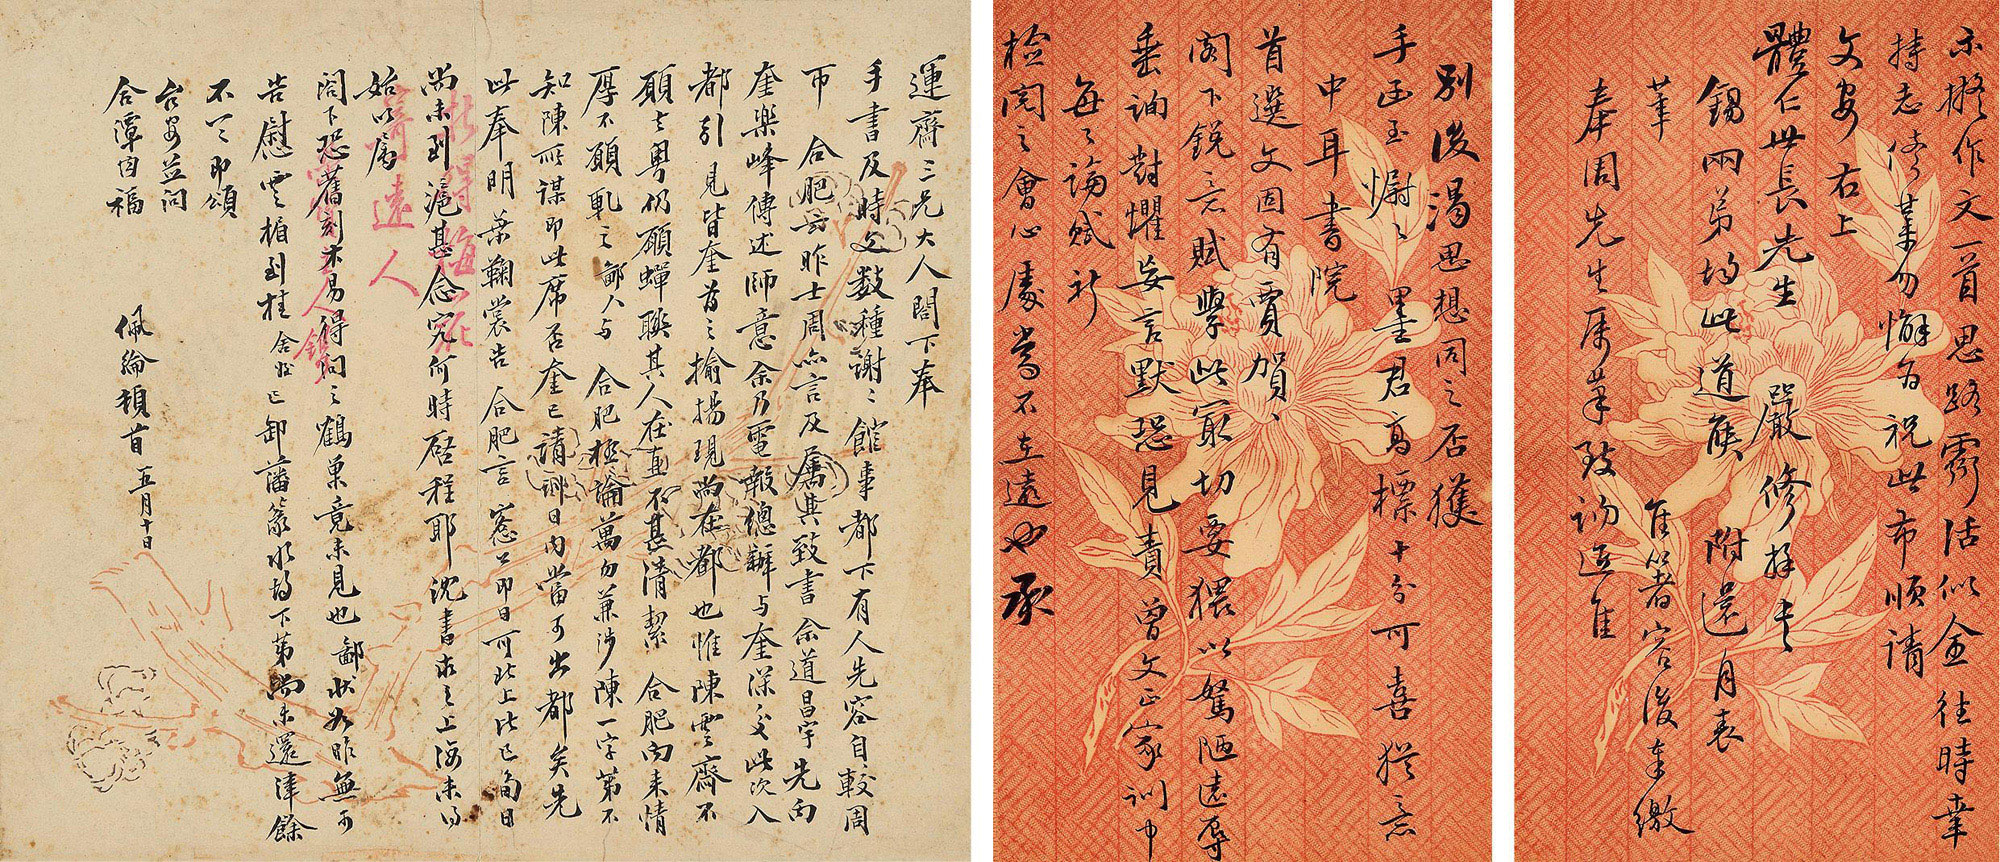 運齋三兄大人閣下奉
手書及時文數種謝謝館事都下有人先容自較周
帀合肥而昨士周亦言及屬其致書余道昌宇先向
奎樂峰傳述師意余乃電報總辦與奎深交此次入
都引見皆奎為之揄揚現尚在都也惟陳雲齋不
願去粵仍願蟬聯其人在直不甚清絜合肥向來情
厚不願軋之鄙人與合肥極論萬勿兼涉陳一字第不
知陳所謀即此席否奎已請訓日內當可出都矣先
此奉明葉鞠裳告合肥言窓公即日可北上比已旬日
尚未到滬甚念究何時啟程耶沈書求之上海未得
始以屬
閣下恐舊刻未易得詢之鶴巢竟未見也鄙狀如昨無可
告慰雲楣到桂舍姪已卸藩篆水場下第尚未還津餘
不一一即頌
台安並問
合潭均福
佩綸頓首五月十日
別後渴思想同之否獲
手函至慰慰墨君高標十分可喜猶言
中耳書院
首選文固有賈賀賀
閣下銳意賦學此最切要猥以駑陋遠辱
垂詢對懼妄言默恐見責曾文正家訓中
每每論賦祈
檢閱之會心處當不在遠也承
示擬作文一首思路靈活似金往時幸
持志修業勿懈為祝此布順請
文安右上
體仁世長先生嚴修拜
錫兩弟均此道候附還月表
華
奉周先生屬筆致詢近佳